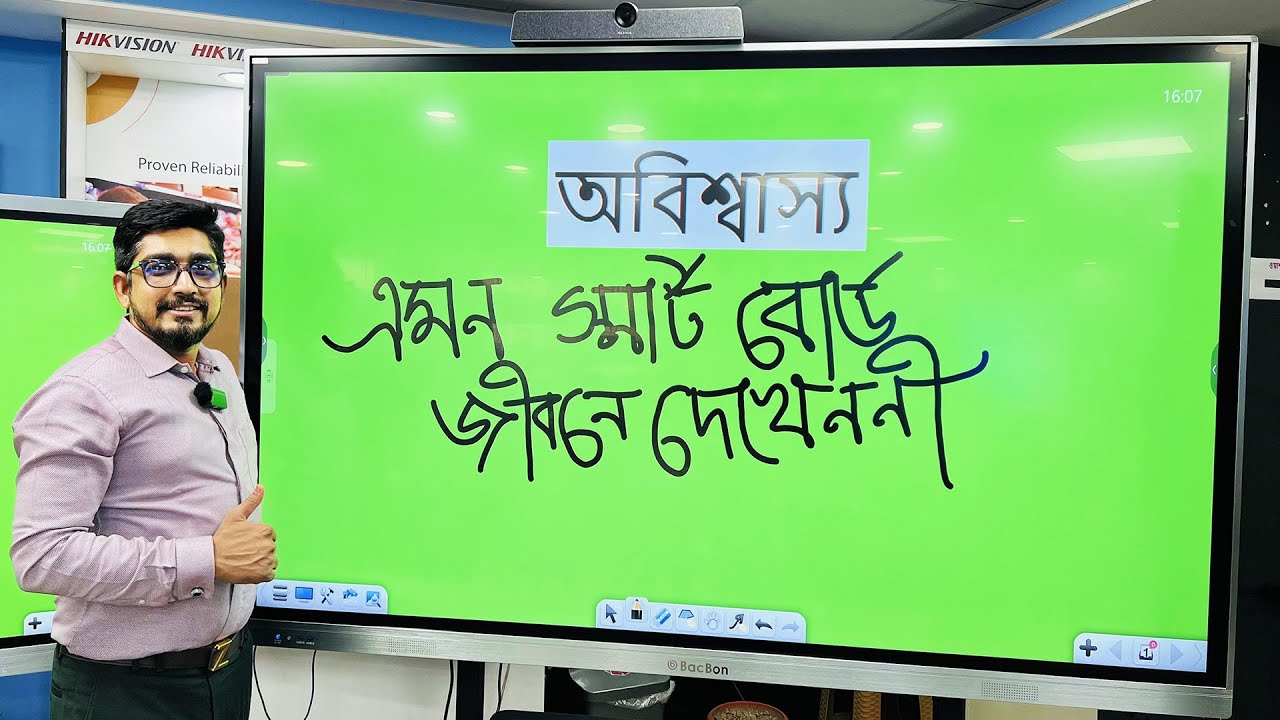 HIKVISION HIKVI
Proven Reliabili
16:07
16:07
অবিশ্বাস্য
এমন স্মার্ট বোর্ড
জীবনে দেখেননী
1
BacBon